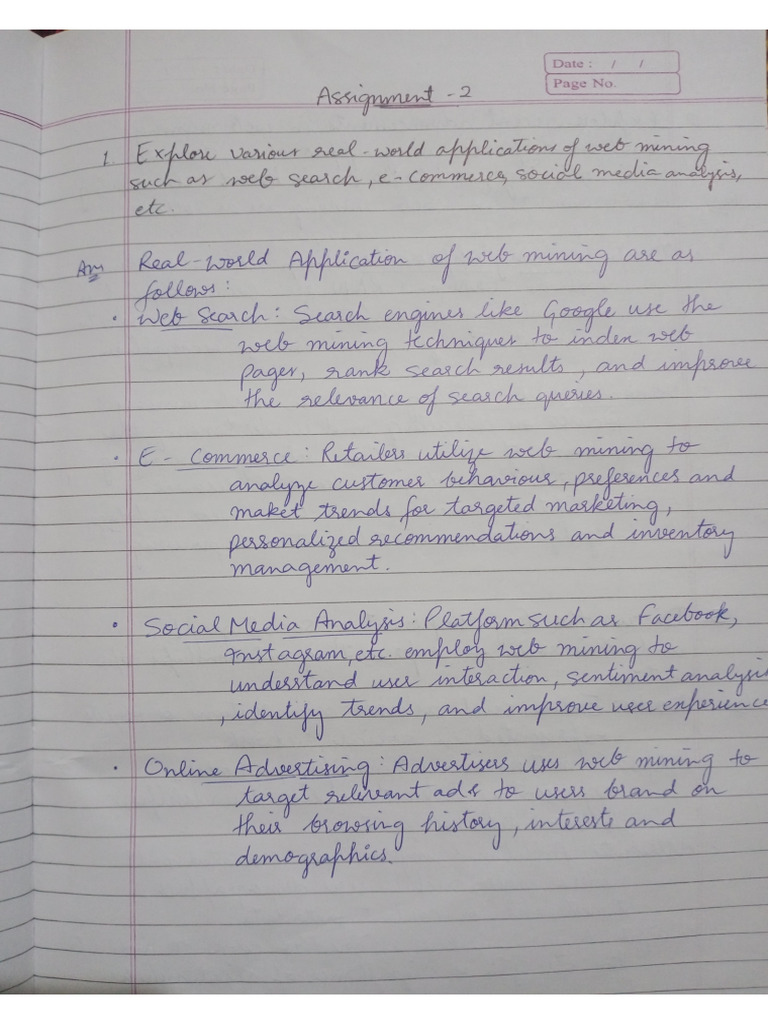 Date :    /    /
Page No.
Assignment - 2
1 Explore various real-world applications of web mining
such as web search, e-commerce, social media analysis,
etc.
Ans Real-World Application of web mining are as
follows:
• Web Search: Search engines like Google use the
web mining techniques to index web
pages, rank search results, and improve
the relevance of search queries.
• E-Commerce: Retailers utilize web mining to
analyze customer behaviour, preferences and
maket trends for targeted marketing,
personalized recommendations and inventory
management.
• Social Media Analysis: Platform such as Facebook,
Instagram, etc. employ web mining to
understand user interaction, sentiment analysis
, identify trends, and improve user experience
• Online Advertising: Advertisers uses web mining to
target relevant ads to users brand on
their browsing history, interests and
demographics.